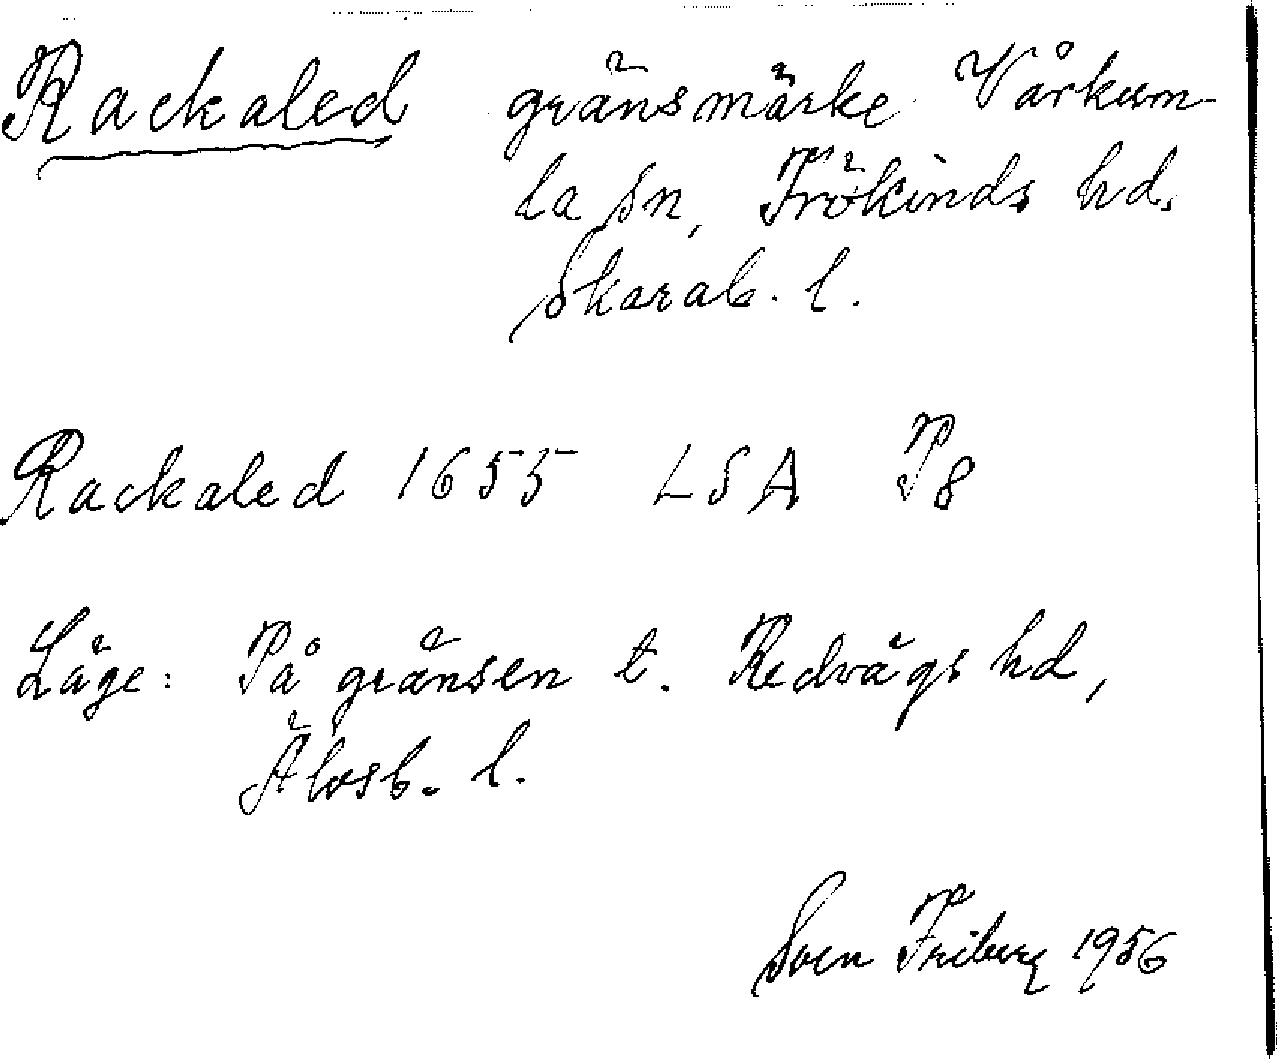 Rackaled gränsmärke Vårkum-
la sn, Frökinds hd.
Skarab. l.
Rackaled 1655 LSA P8
Läge: På gränsen t. Redvägs hd,
Älvsb. l.
Sven Friberg 1956